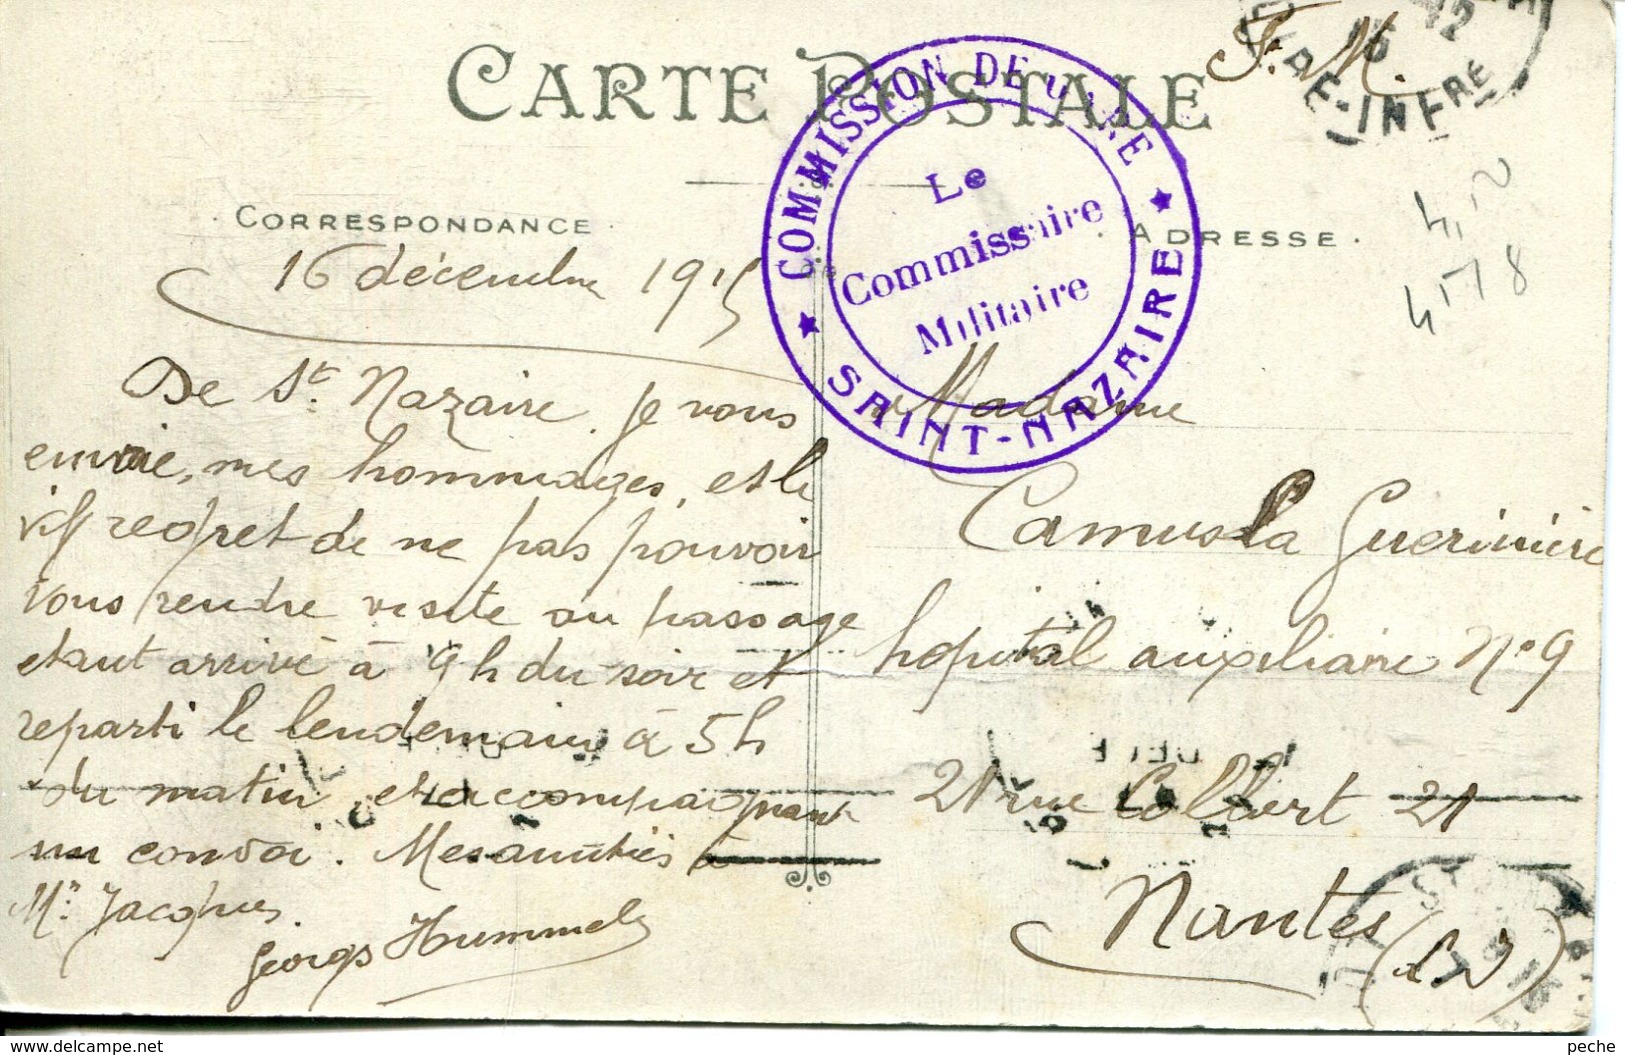 CARTE POSTALE
F. M.
COMMISSION DE GARE
Le
Commissaire
Militaire
★ SAINT-NAZAIRE ★
RE-INFRE
CORRESPONDANCE
ADRESSE.
16 décembre 1915
De St. Nazaire je vous
envoie, mes hommages, et le
vif regret de ne pas pouvoir
vous rendre visite au passage
etant arrivé à 9h du soir et
reparti le lendemain à 5h
du matin, et accompagnant
un convoi. Mes amitiés à
Mr. Jacques.
Georges Hummel
Madame
Camus la Guerinière
hopital auxiliaire No 9
21 rue Colbert 21
Nantes
4178
delcampe.net
peche